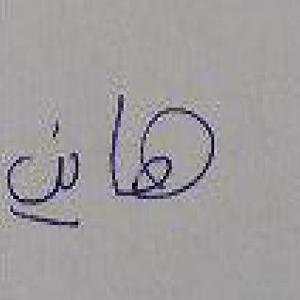 هاني